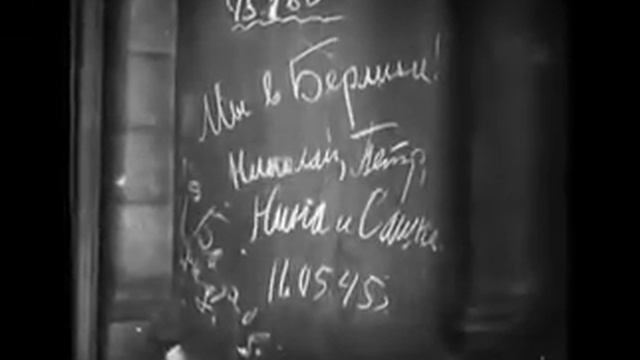 Мы в Берлине!
Николай, Петр,
Нина и Сашка
11.05.45